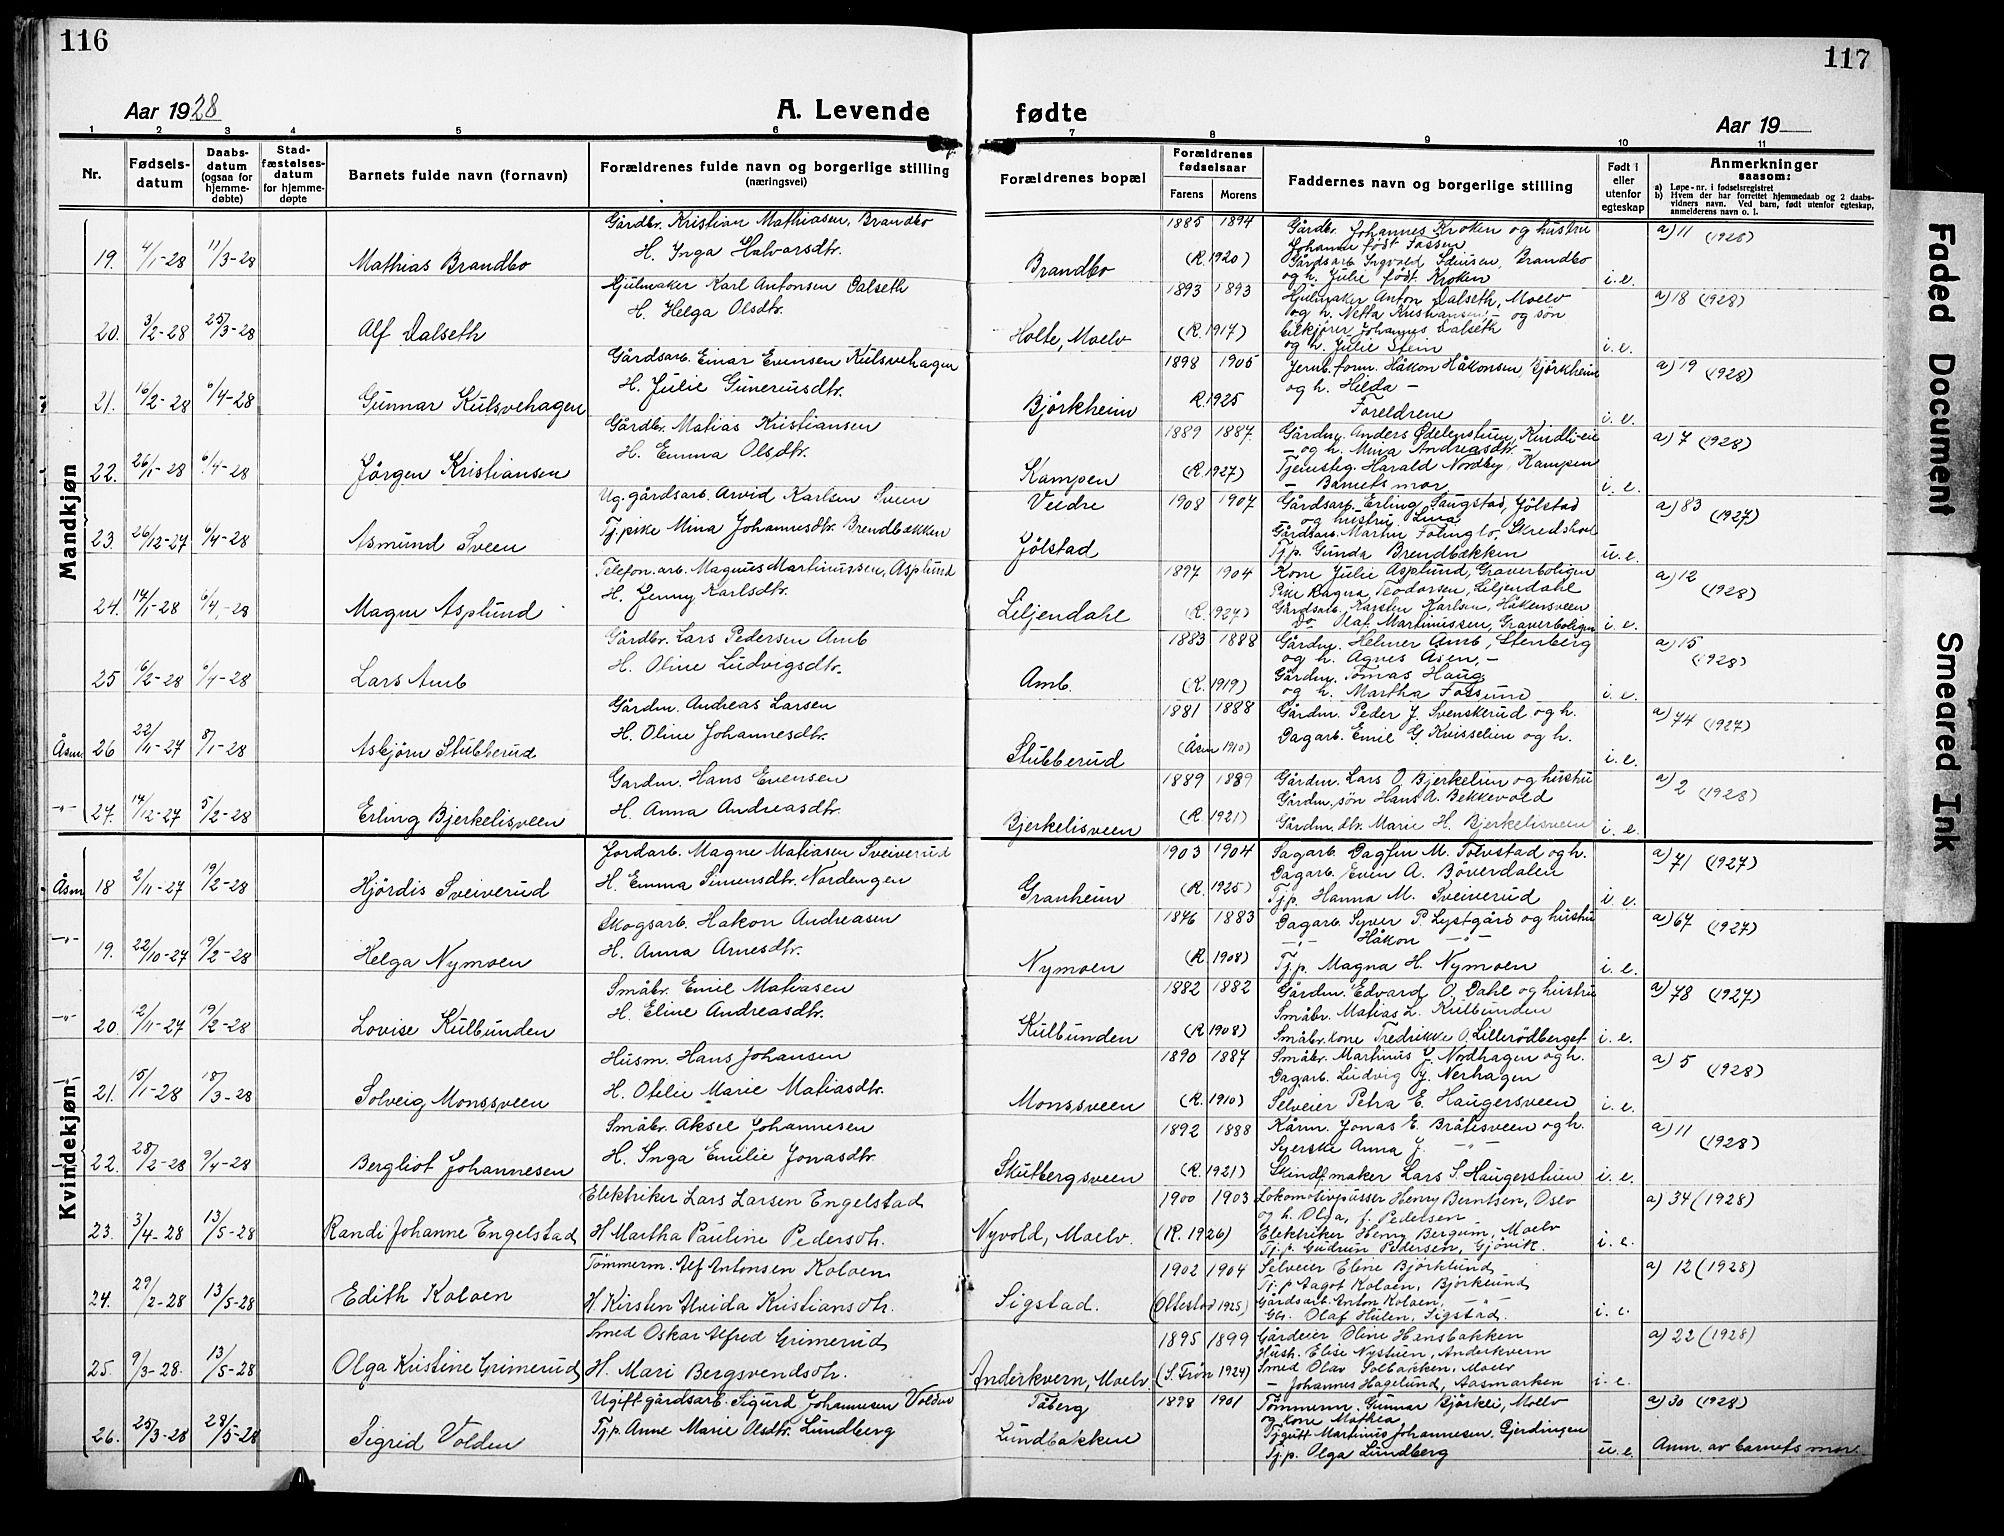 116
117
Aar 1928
A. Levende
fødte
Aar 19
1 2 3 4 5 6 7 8 9 10 11
Nr.
Fødsels-
datum
Daabs-
datum
(ogsaa for
hjemme-
døbte)
Stad-
fæstelses-
datum
for hjemme-
døpte
Barnets fulde navn (fornavn)
Forældrenes fulde navn og borgerlige stilling
(næringsvei)
Forældrenes bopæl
Forældrenes
fødselsaar
Farens Morens
Faddernes navn og borgerlige stilling
Født i
eller
utenfor
egteskap
Anmerkninger
saasom:
a) Løpe-nr. i fødselsregistret
b) Hvem der har forrettet hjemmedaab og 2 daabs-
vidners navn. Ved barn, født utenfor egteskap,
anmelderens navn o. l.
Mandkjøn
Gårdbr. Kristian Mathiasen, Brandbo 1885 1894 Gårdbr. Johannes Kroken og hustru a) 11 (1928)
Johanne født Fossen
19. 4/1-28 11/3-28 Mathias Brandbo H. Inga Halvorsdtr. Brandbo (R. 1920) Gårdsarb. Ingvald Brandbo
og h. Julie født Kroken i. e.
Hjulmaker Karl Antonsen Dalseth 1893 1893 Hjulmaker Anton Dalseth, Moelv a) 18 (1928)
og h. Netta Kristiansen - og søn
20. 3/2-28 25/3-28 Alf Dalseth H. Helga Olsdtr. Holte, Moelv (R. 1917) Bilkjører Johannes Dalseth
og h. Julie Stein i. e.
Gårdsarb. Einar Evensen Kulsvehagen 1898 1905 Jernb.form. Håkon Håkonsen, Bjørkheim a) 19 (1928)
og h. Hilda -
21. 16/2-28 6/4-28 Gunnar Kulsvehagen H. Julie Guneriusdtr. Bjørkheim R. 1925 Foreldrene i. e.
Gårdbr. Matias Kristiansen 1889 1887. Gårdm. Anders Ødelenstuen, a) 7 (1928)
- og h. Mina Andreasdtr. -
22. 26/1-28 6/4-28 Jørgen Kristiansen H. Emma Olsdtr. Kampen (R. 1927) Tjenesteg. Harald Nordby, Kampen
- Barnets mor i. e.
Ug. gårdsarb. Arvid Karlsen Sveen Veldre 1908 1907 Gårdsarb. Erling Saugstad, Jølstad a) 83 (1927)
og hustru Lina
23. 26/12-27 6/4-28 Asmund Sveen Tj.pike Mina Johannesdtr. Brendbækken Jølstad Gårdsarb. Martin
Tj.p. Gunda Brendbækken u. e.
Telefon. arb. Magnus Martinussen, Asplund 1897 1904 Kone Julie Asplund, Graverboligen a) 12 (1928)
Pike Ragna Teodorsen, Liljendahl
24. 14/1-28 6/4-28 Magne Asplund H. Jenny Karlsdtr. Liljendahl (R. 1924) Gårdsarb. Karsten Karlsen, Håkensveen
do Olaf Martinussen, Graverboligen i. e.
Gårdbr. Lars Pedersen Amb 1883 1888 Gårdm. Helmer Amb, Stenberg a) 15 (1928)
og h. Agnes Åsen, -
25 16/2-28 6/4-28 Lars Amb H. Oline Ludvigsdtr. Amb. (R. 1919) Gårdm. Tomas Haug
og h. Martha Fossum i. e.
Gårdm. Andreas Larsen 1881 1888 Gårdm. Peder J. Svenskerud og h. a) 74 (1927)
Åsm. 26 22/11-27 8/1-28 Asbjørn Stubberud H. Oline Johannesdtr. Stubberud (Åsm 1910) Dagarb. Emil G. Kvisselien og h. i. e.
Gardm. Hans Evensen 1889 1889 Gårdm. Lars O. Bjerkelien og hustru a) 2 (1928)
Gårdm. søn Hans A. Bekkevold
-"- 27. 14/12-27 5/2-28 Erling Bjerkelisveen H. Anna Andreasdtr. Bjerkelisveen (R. 1921) Gårdm. dtr. Marie H. Bjerkelisveen i. e.
Kvindekjøn
Jordarb. Magne Matiasen Sveiverud 1903 1904 Sagarb. Dagfin M. Tolvstad og h. a) 71 (1927)
Dagarb. Even A. Bøverdalen
Åsm 18 2/11-27 19/2-28 Hjördis Sveiverud H. Emma Simensdtr. Nordengen Granheim (R. 1925) Tj.p. Hanna M. Sveiverud i. e.
Skogsarb. Hakon Andreasen 1876 1883 Dagarb. Syver P. Lystgård og hustru a) 67 (1927)
-"- Håkon -"-
-"- 19. 22/10-27 19/2-28 Helga Nymoen H. Anna Arnesdtr. Nymoen (R. 1908) Tj.p. Magna H. Nymoen i. e.
Småbr. Emil Matiasen 1882 1882 Gårdm. Edvard O. Dahl og hustru a) 78 (1927)
Småbr. Matias L. Kulbunden
-"- 20. 12/11-27 19/2-28 Lovise Kulbunden H. Eline Andreasdtr. Kulbunden (R 1908) Småbr. kone Fredrikke O. Lillerødberget i. e.
Husm. Hans Johansen 1890 1887 Småbr. Martinus J. Nordhagen og h. a) 5 (1928)
Dagarb. Ludvig J. Nerhagen
21. 15/1-28 18/3-28 Solveig Monssveen H. Otelie Marie Matiasdtr. Monssveen (R. 1910) Selveier Petra E. Haugersveen i. e.
Småbr. Aksel Johannesen 1892 1888 Kårm. Jonas E. Bråtisveen og h. a) 11 (1928)
Syerske Anna J. -"-
22. 28/2-28 9/4-28 Bergliot Johannesen H. Inga Emilie Jonasdtr. Skutbergsveen (R. 1921) Skindf.maker Lars S. Haugerstuen i. e.
Elektriker Lars Larsen Engelstad 1900 1903 Lokomotivpusser Henry Berntsen, Oslo a) 34 (1928)
og h. Olga, f. Pedersen
23. 3/4-28 13/5-28 Randi Johanne Engelstad H Martha Pauline Pedersdtr. Nyvold, Moelv. (R. 1926) Elektriker Henry Bergum, Moelv
Tj.p. Gudrun Pedersen, Gjøvik. i. e.
Tømmerm. Alf Antonsen Koloen 1902 1904 Selveier Eline Bjørklund a) 12 (1928)
Tj.p Aagot Koloen, Bjørklund
24. 29/2-28 13/5-28 Edith Koloen H. Kirsten Alvida Kristiansdtr. Sigstad. (Ottestad 1925) Gårdsarb. Anton Koloen, -"-
Olaf Hulen, Sigstad. i. e.
Smed Oskar Alfred Grimerud 1895 1899 Gårdeier Oline Hensbakken a) 22 (1928)
Hush. Elise Nystuen, Anderkvern
25. 9/3-28. 13/5-28 Olga Kristine Grimerud H. Mari Bergsvendsdtr. Anderkvern, Moelv. (S. Trøn 1924) Smed Olav Solbakken, Moelv
- Johannes Hagelund, Aasmarken i. e.
Ugift gårdsarb. Sigurd Johannesen Volden Tåberg 1898 1901 Tømmerm. Gunnar Bjørkli, Moelv a) 30 (1928)
og kone Mathea
26. 25/3-28 28/5-28 Sigrid Volden Tj.p Anne Marie Olsdtr. Lundberg Lundbakken Tj.gutt Martinus Johannesen, Gjerdingen
Tj.p. Olga Lundberg u. e. Anm. av barnets mor
Faded Document
Smeared Ink